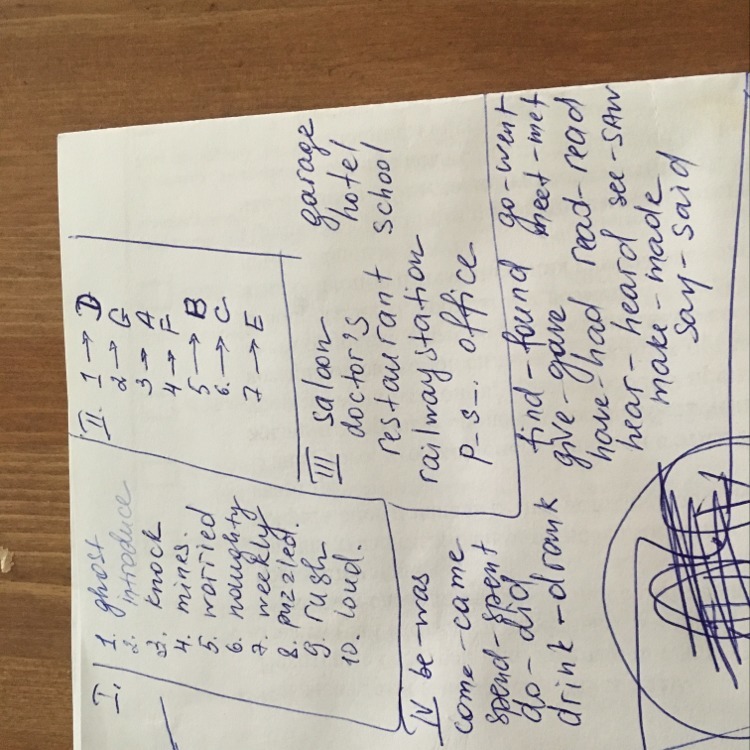 I.
1. ghost
2. introduce
3. knock
4. mines.
5. worried
6. naughty
7. weekly
8. puzzled.
9. rush
10. loud.
II. 1 → D
2 → G
3 → A
4 → F
5 → B
6. → C
7 → E
III saloon
doctor's
restaurant
railway station
p-s-. office
garage
hotel
school
IV be-was
come-came
spend-spent
do-did
drink-drank
find-found
give-gave
have-had
hear-heard
make-made
say-said
go-went
meet-met
read-read
see-saw